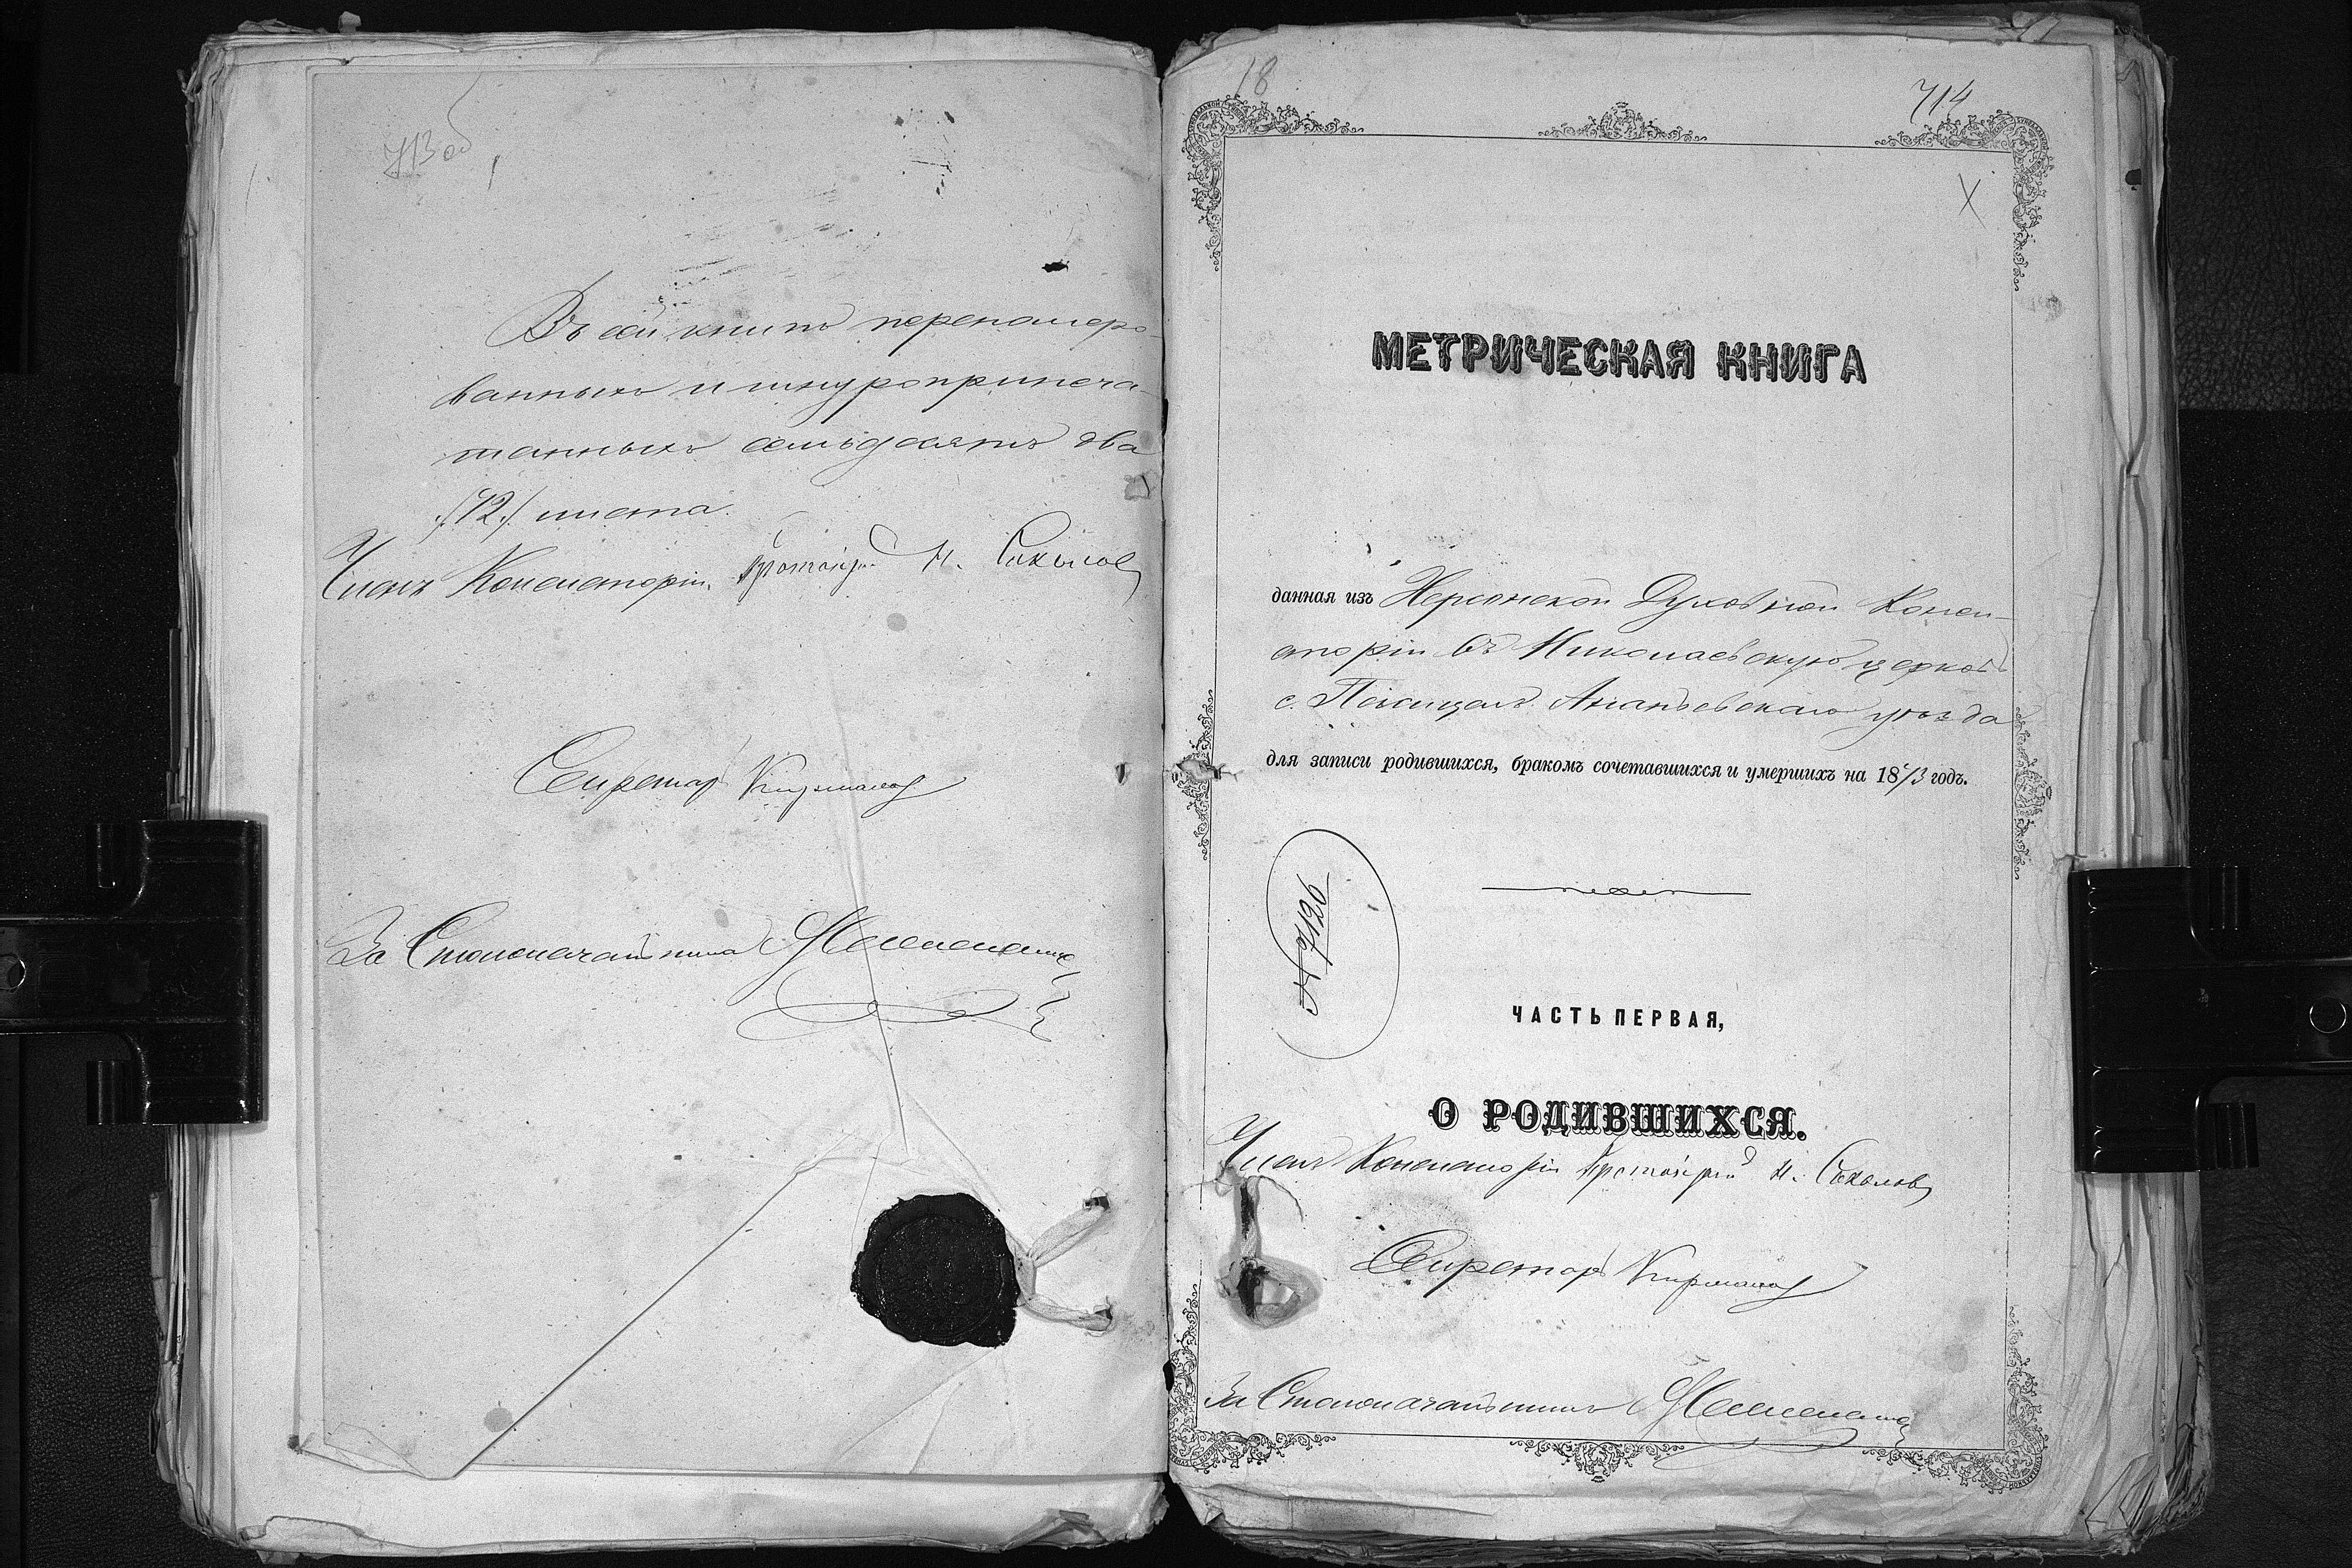 713 об
Въ сей книгѣ перенумеро-
ванныхъ и шнуроприпеча-
танныхъ семьдесятъ два
/72/ листа.
Членъ Консисторіи, Протоіерей Н. Соколовъ
Секретарь
За Столоначальника
18
714
X
МЕТРИЧЕСКАЯ КНИГА
данная изъ Херсонской Духовной Консис-
торіи въ Николаевскую церковь
с. Ананьевскаго уѣзда
для записи родившихся, бракомъ сочетавшихся и умершихъ на 1873 годъ.
№ 7126
ЧАСТЬ ПЕРВАЯ,
О РОДИВШИХСЯ.
Членъ Консисторіи Протоіерей Н. Соколовъ
Секретарь
За Столоначальника